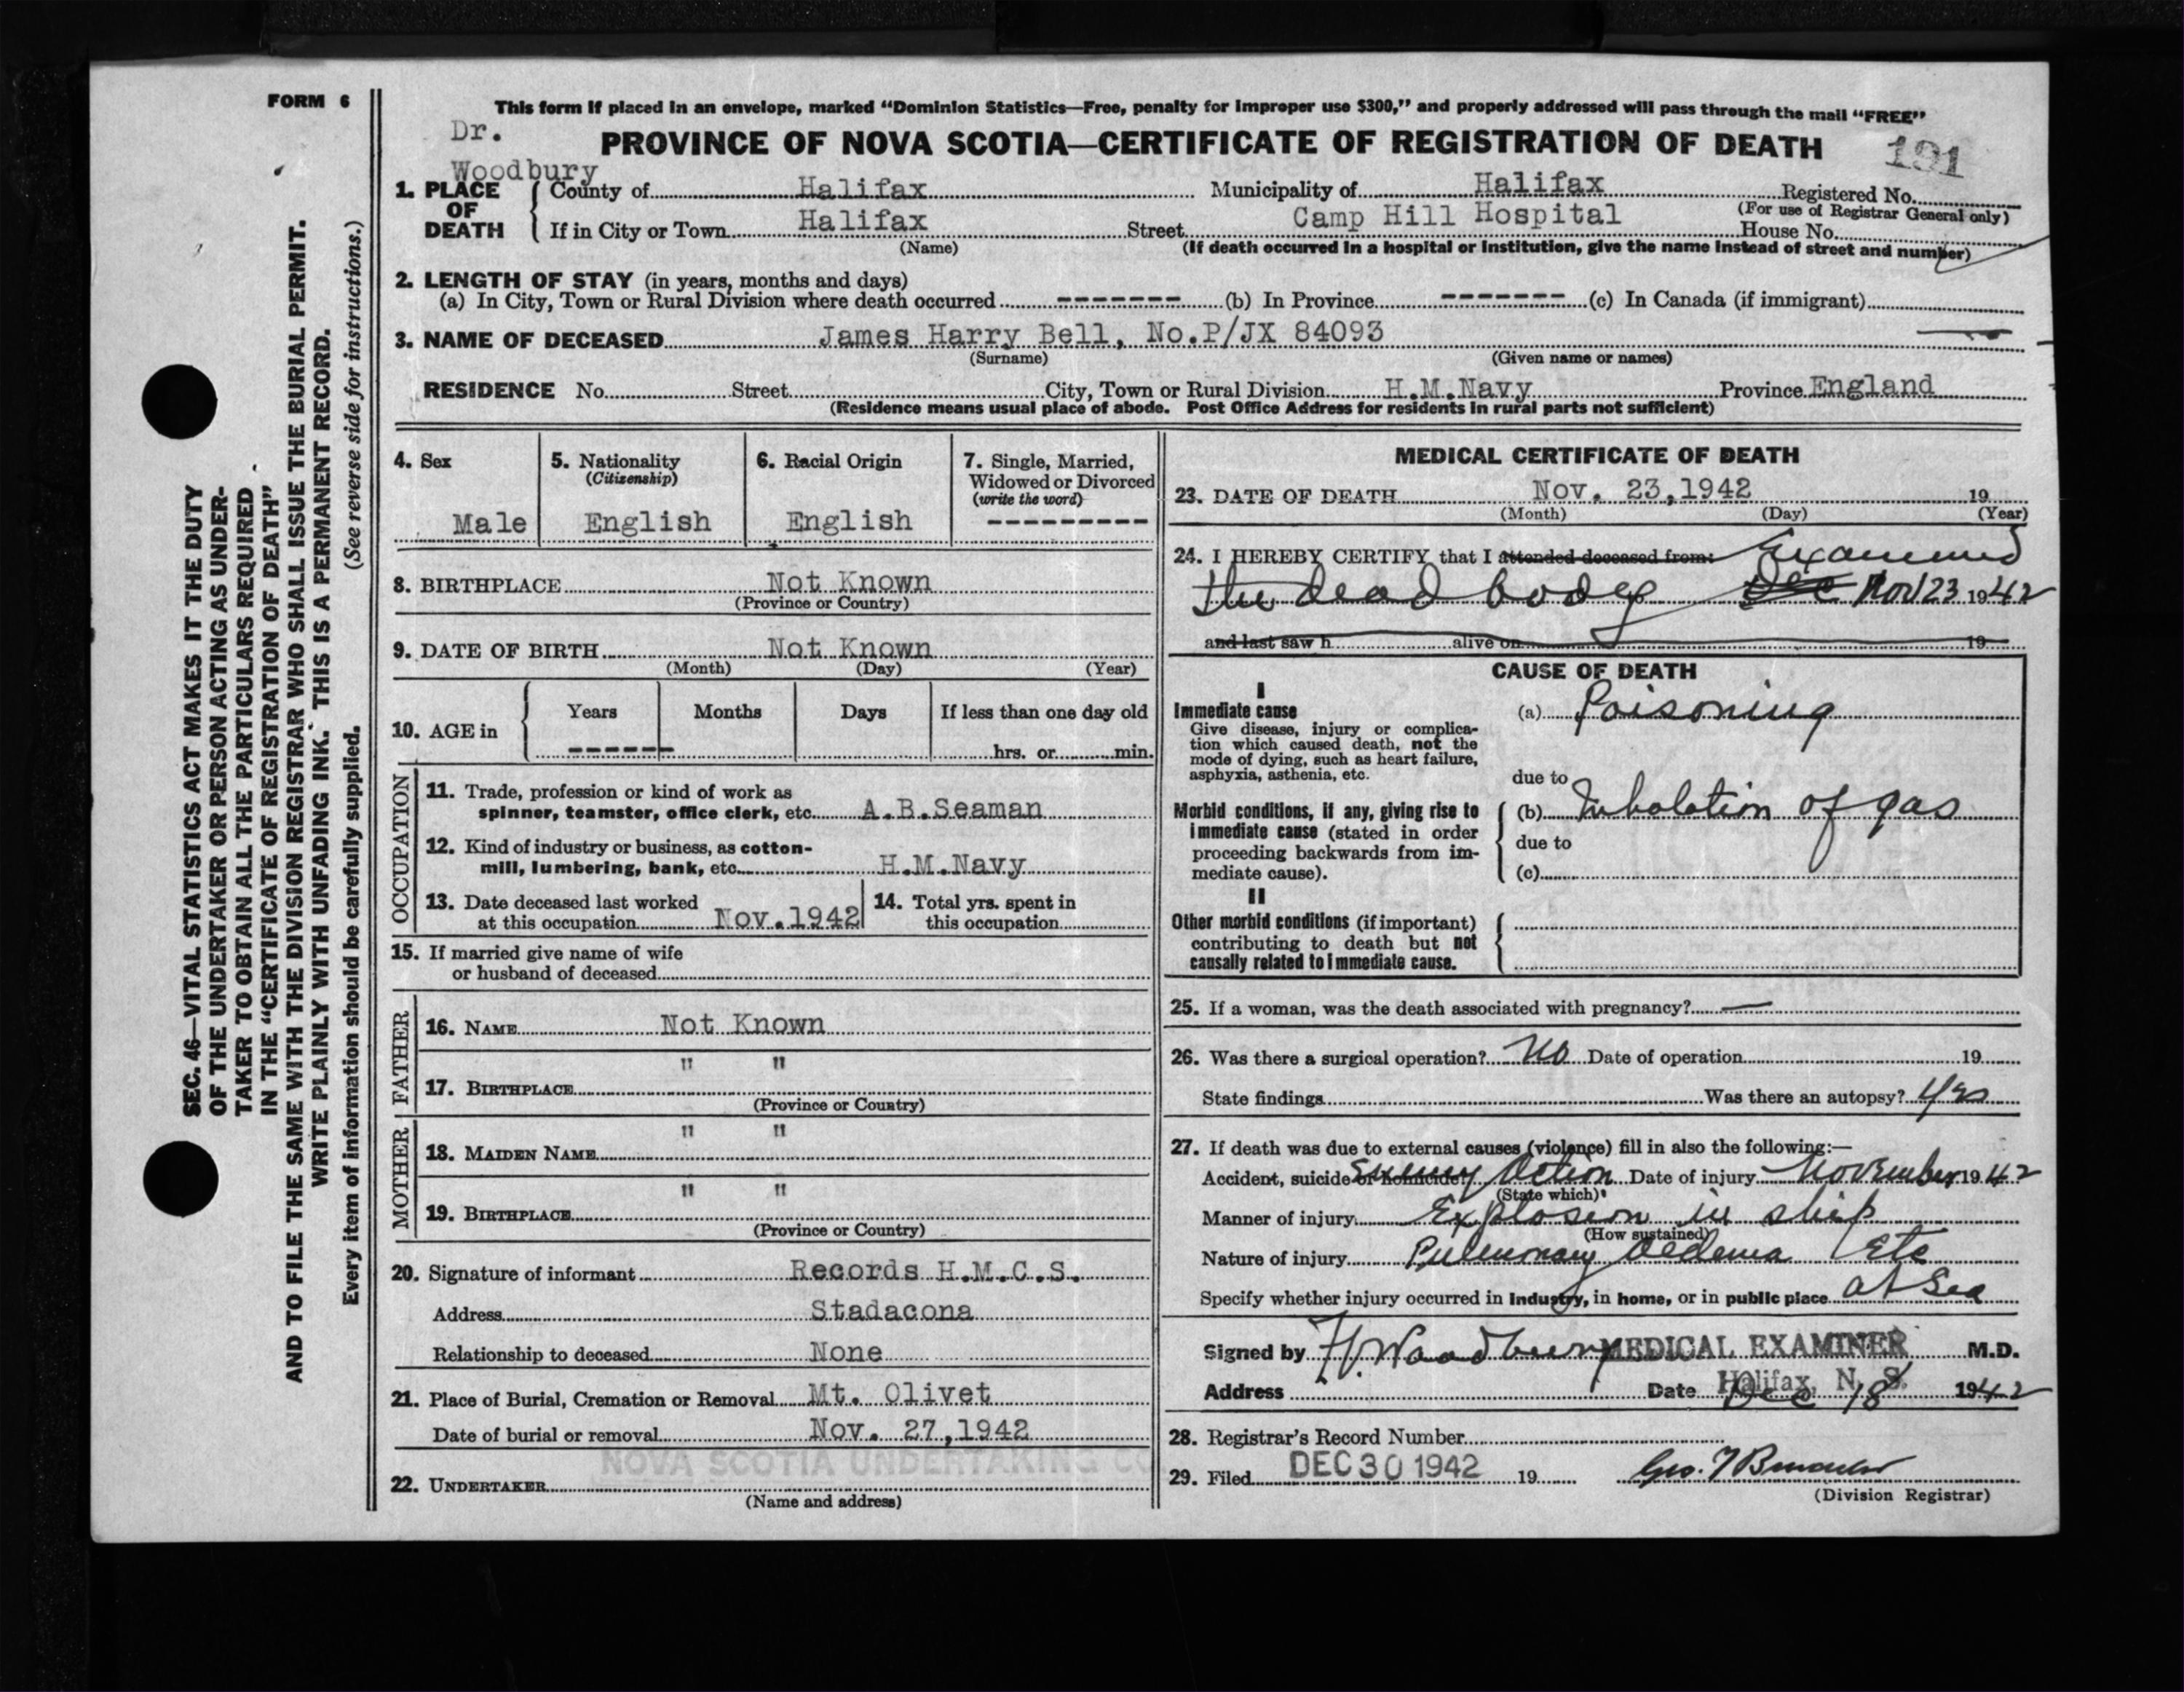 FORM 6
This form if placed in an envelope, marked “Dominion Statistics—Free, penalty for improper use $300,” and properly addressed will pass through the mail “FREE”
Dr.
Woodbury
PROVINCE OF NOVA SCOTIA—CERTIFICATE OF REGISTRATION OF DEATH
191
1. PLACE OF DEATH
County of Halifax Municipality of Halifax Registered No.
(For use of Registrar General only)
If in City or Town Halifax Street Camp Hill Hospital House No.
(Name) (If death occurred in a hospital or institution, give the name instead of street and number)
2. LENGTH OF STAY (in years, months and days)
(a) In City, Town or Rural Division where death occurred ------- (b) In Province ------- (c) In Canada (if immigrant)
3. NAME OF DECEASED James Harry Bell, No.P/JX 84093
(Surname) (Given name or names)
RESIDENCE No. Street City, Town or Rural Division H.M.Navy Province England
(Residence means usual place of abode. Post Office Address for residents in rural parts not sufficient)
4. Sex
Male
5. Nationality
(Citizenship)
English
6. Racial Origin
English
7. Single, Married,
Widowed or Divorced
(write the word)
---------
8. BIRTHPLACE Not Known
(Province or Country)
9. DATE OF BIRTH Not Known
(Month) (Day) (Year)
10. AGE in
Years Months Days If less than one day old
------ hrs. or min.
OCCUPATION
11. Trade, profession or kind of work as
spinner, teamster, office clerk, etc. A.B.Seaman
12. Kind of industry or business, as cotton-
mill, lumbering, bank, etc. H.M.Navy
13. Date deceased last worked
at this occupation Nov.1942
14. Total yrs. spent in
this occupation
15. If married give name of wife
or husband of deceased
FATHER
16. NAME Not Known
" "
17. BIRTHPLACE
(Province or Country)
MOTHER
" "
18. MAIDEN NAME
" "
19. BIRTHPLACE
(Province or Country)
20. Signature of informant Records H.M.C.S.
Address Stadacona
Relationship to deceased None
21. Place of Burial, Cremation or Removal Mt. Olivet
Date of burial or removal Nov. 27,1942
NOVA SCOTIA UNDERTAKING CO
22. UNDERTAKER
(Name and address)
MEDICAL CERTIFICATE OF DEATH
23. DATE OF DEATH Nov. 23,1942 19
(Month) (Day) (Year)
24. I HEREBY CERTIFY that I attended deceased from: Examined
the dead body Dec Nov 23 1942
and last saw h alive on 19
CAUSE OF DEATH
I
Immediate cause (a) Poisoning
Give disease, injury or complica-
tion which caused death, not the
mode of dying, such as heart failure,
asphyxia, asthenia, etc.
due to
Morbid conditions, if any, giving rise to
immediate cause (stated in order
proceeding backwards from im-
mediate cause).
(b) Inhalation of gas
due to
(c)
II
Other morbid conditions (if important)
contributing to death but not
causally related to immediate cause.
25. If a woman, was the death associated with pregnancy? —
26. Was there a surgical operation? No Date of operation 19
State findings Was there an autopsy? Yes
27. If death was due to external causes (violence) fill in also the following:—
Accident, suicide or homicide? Enemy Action Date of injury November 1942
(State which)
Manner of injury Explosion in ship
(How sustained)
Nature of injury Pulmonary Oedema Etc
Specify whether injury occurred in industry, in home, or in public place at Sea
Signed by Woodbury MEDICAL EXAMINER M.D.
Address Date Halifax, N. S. Dec 18 1942
28. Registrar's Record Number
29. Filed DEC 30 1942 19 Geo.
(Division Registrar)
SEC. 46—VITAL STATISTICS ACT MAKES IT THE DUTY
OF THE UNDERTAKER OR PERSON ACTING AS UNDER-
TAKER TO OBTAIN ALL THE PARTICULARS REQUIRED
IN THE “CERTIFICATE OF REGISTRATION OF DEATH”
AND TO FILE THE SAME WITH THE DIVISION REGISTRAR WHO SHALL ISSUE THE BURIAL PERMIT.
WRITE PLAINLY WITH UNFADING INK. THIS IS A PERMANENT RECORD.
Every item of information should be carefully supplied. (See reverse side for instructions.)